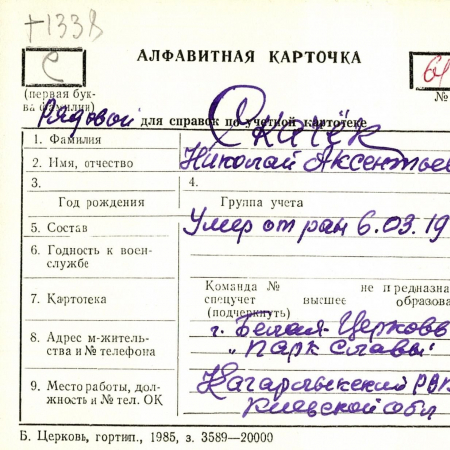 +1338
АЛФАВИТНАЯ КАРТОЧКА
С
61
(первая бук-
ва фамилии)
№
Рядовой
для справок по учетной картотеке
1. Фамилия
2. Имя, отчество Николай Аксентьев
3. 4.
Год рождения Группа учета
5. Состав Умер от ран 6.03.19
6. Годность к воен-
службе
Команда № не предназна
7. Картотека спецучет высшее образова
(подчеркнуть)
8. Адрес м-житель-
ства и № телефона
г. Белая-Церковь
„парк Славы"
9. Место работы, дол-
жность и № тел. ОК
Кагарлыкский РВК
Киевской обл
Б. Церковь, гортип., 1985, з. 3589—20000